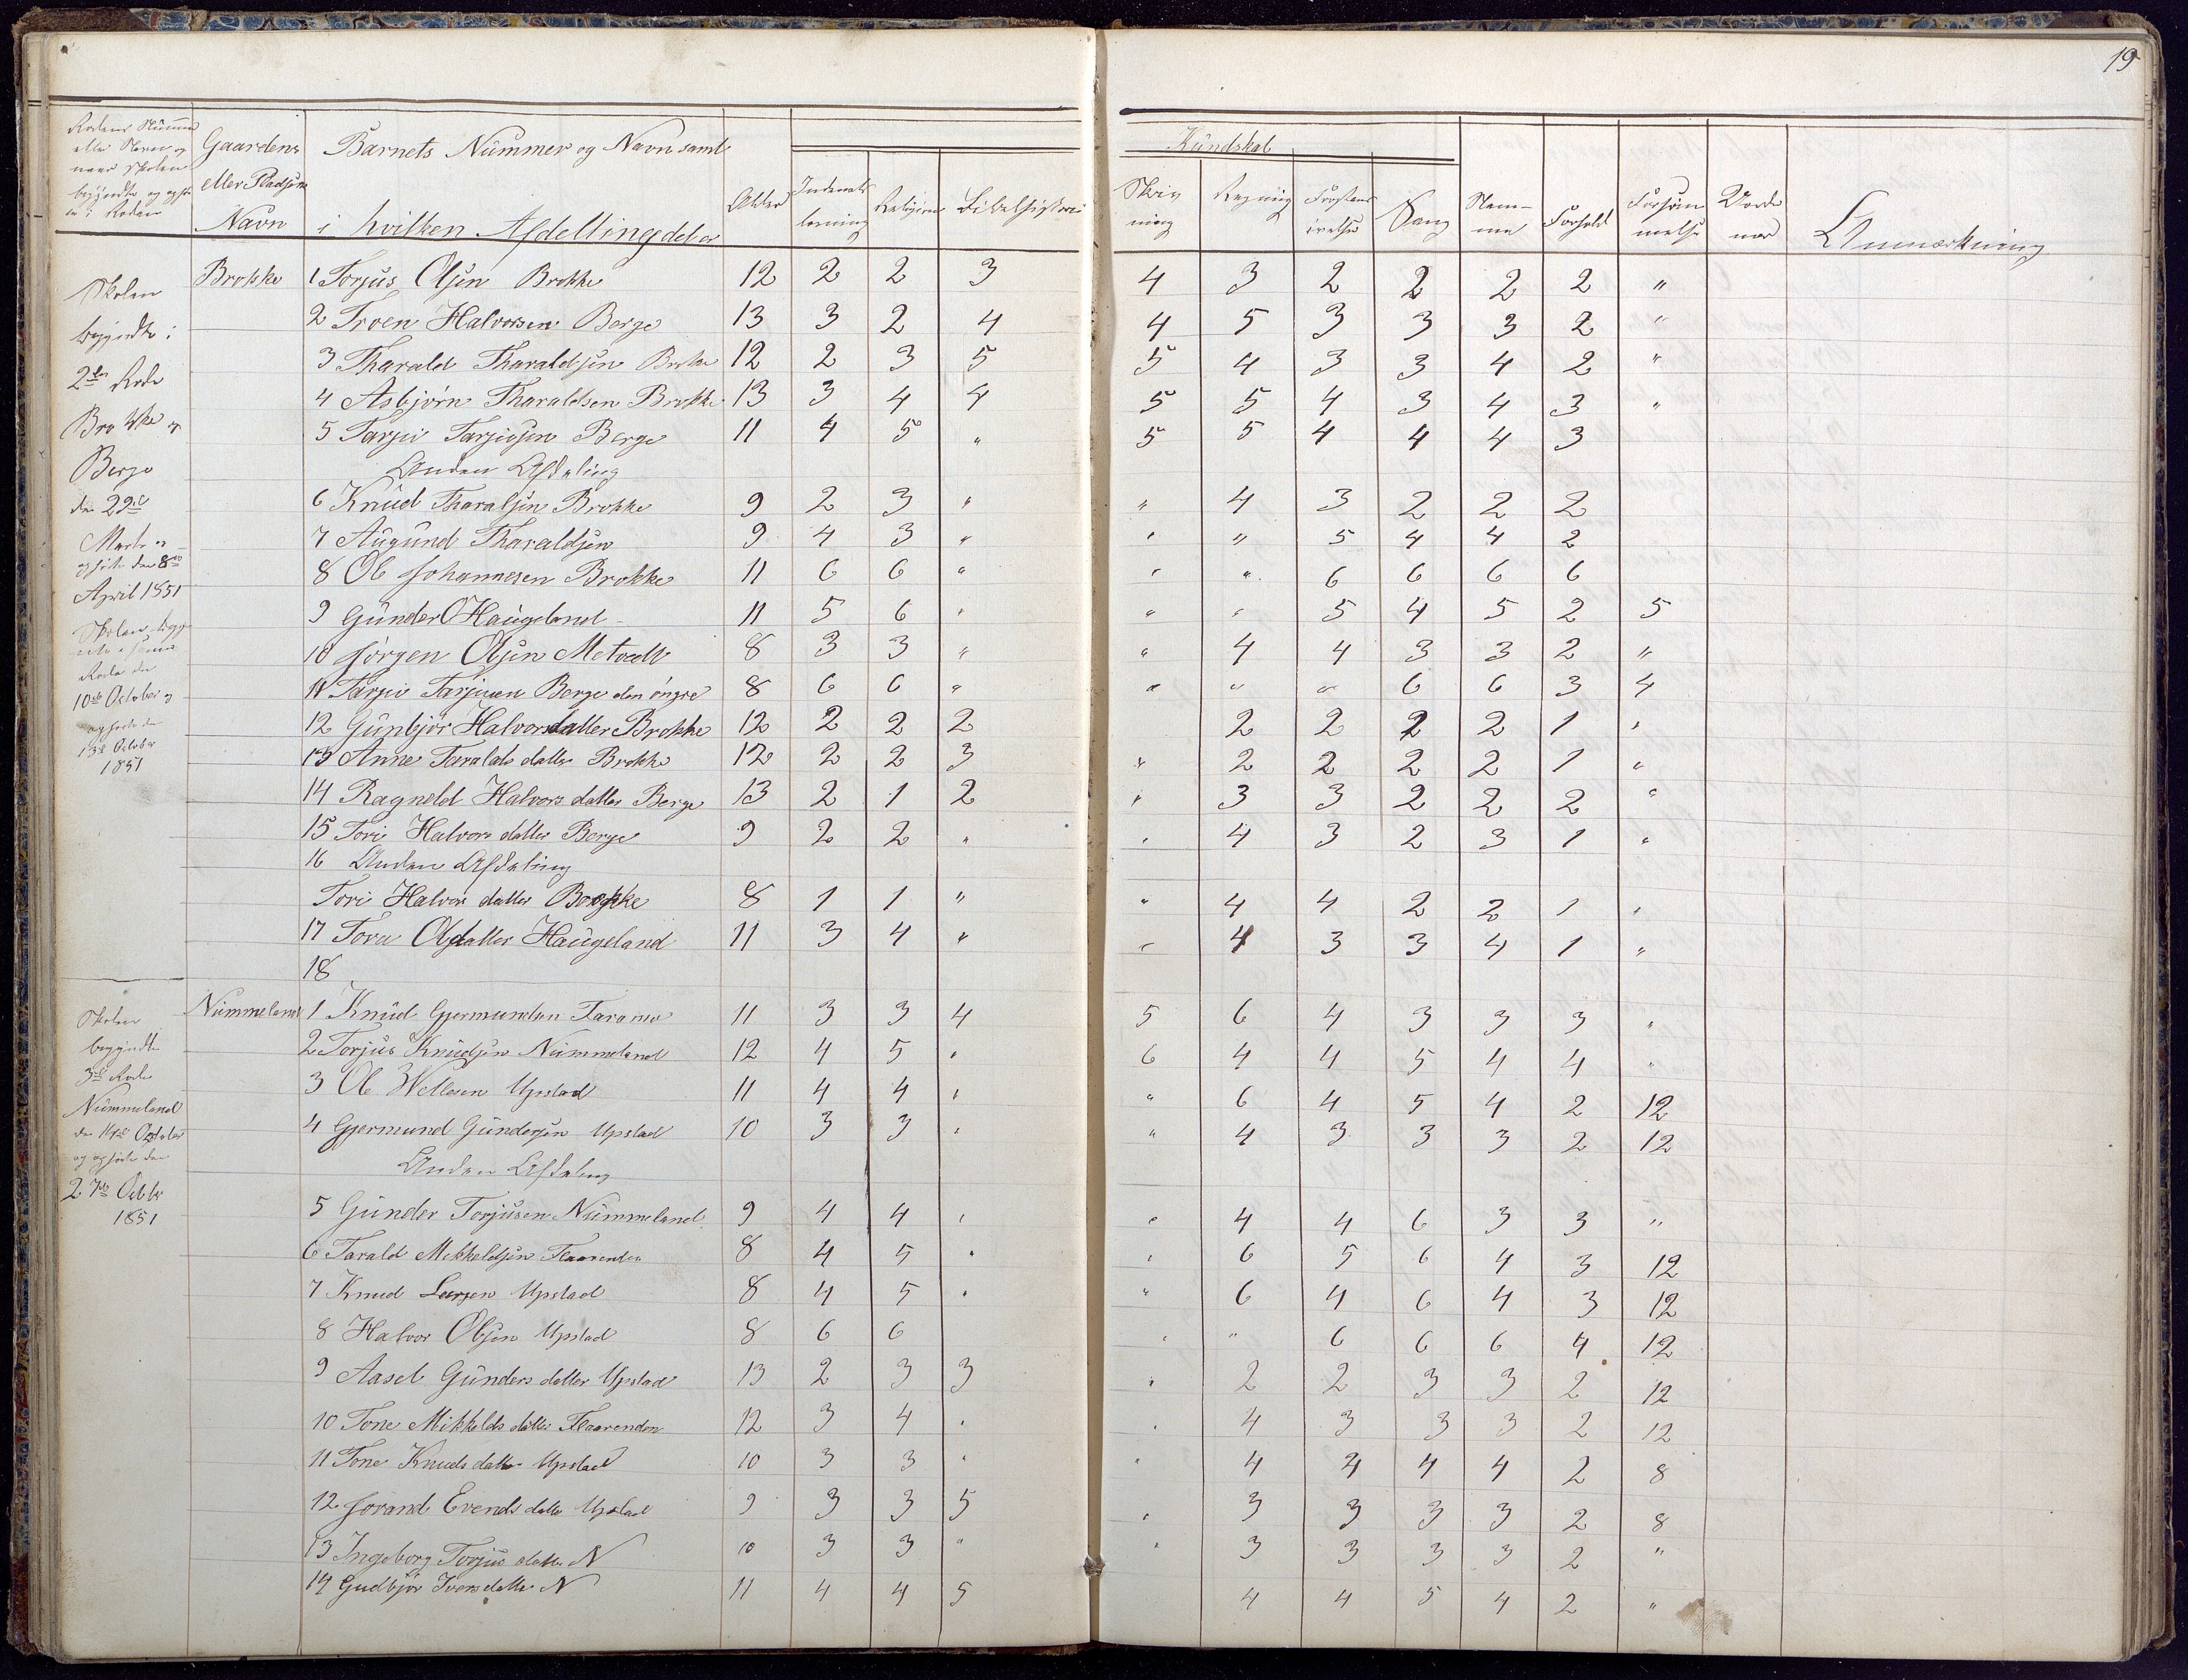 19
Rodens Numme
eller Navn og
naar Skolen
begyndte og ophø
Gaardens
eller Pladsens
Navn
Barnets Nummer og Navn samt
i hvilken Afdelling det er
Alder
Indenads
læsning
Religion
Bibelhistorie
Kundskab
Skriv
ning
Regning
Forstand
Sang
Nem-
me
Forhold
Forsøm
melse
Anmærkning
Skolen
begyndte i
2den Rode
Brokke og
Berge
den 29de
Marts og
ophørte den 8de
April 1851
Skolen
Rode den
10de October og
ophørte den
13de October
1851
Brokke
1 Torjus Olsen Brokke 12 2 2 3 4 3 2 2 2 2 "
2 Troen Halvorsen Berge 13 3 2 4 4 5 3 3 3 2 "
3 Tharald Tharaldsen Brokke 12 2 3 5 5 4 3 3 4 2 "
4 Asbjørn Tharaldsen Brokke 13 3 4 4 5 5 4 3 4 3 "
5 Tarjei Tarjeisen Berge 11 4 5 " 5 5 4 4 4 3
Anden Afdeling
6 Knud Tharalsen Brokke 9 2 3 " " 4 3 2 2 2
7 Augund Tharaldsen 9 4 3 " " " 5 4 4 2
8 Ole Johannesen Brokke 11 6 6 " " " 6 6 6 6
9 Gunder O Haugeland 11 5 6 " " " 5 4 5 2 5
10 Jørgen Olsen Metvedt 8 3 3 " " 4 4 3 3 2 "
11 Tarjei Tarjeisen Berge den yngre 8 6 6 " " " " 6 6 3 4
12 Gunbjør Halvorsdatter Brokke 12 2 2 2 2 2 2 2 1 "
13 Anne Taralds datter Brokke 12 2 2 3 " 2 2 2 2 1 "
14 Ragneld Halvors datter Berge 13 2 1 2 " 3 3 2 2 2 "
15 Tori Halvors datter Berge 9 2 2 " " 4 3 2 3 1 "
16 Anden Afdeling
Tori Halvors datter Brokke 8 1 1 " " 4 4 2 2 1 "
17 Tora Olsdatter Haugeland 11 3 4 " " 4 3 3 4 1 "
18
Skolen
begyndte
3de Rode
Nummeland
den 14de October
og ophørte den
27de Octbr
1851
Nummeland
1 Knud Gjermundsen Faramo 11 3 3 4 5 6 4 3 3 3 "
2 Torjus Knudsen Nummeland 12 4 5 " 6 4 4 5 4 4 "
3 Ole Wellesen Upstad 11 4 4 " " 6 4 5 4 2 12
4 Gjermund Gundersen Upstad 10 3 3 " " 4 3 3 3 2 12
Anden Afdeling
5 Gunder Torjusen Nummeland 9 4 4 " " 4 4 6 3 3 "
6 Tarald Mekkeldsen Flaarenden 8 4 5 " " 6 5 6 4 3 12
7 Knud Larsen Upstad 8 4 5 " " 6 4 6 4 3 12
8 Halvor Olsen Upstad 8 6 6 " " 6 6 6 4 12
9 Aasel Gunders datter Upstad 13 2 3 3 " 2 2 3 3 2 12
10 Tone Mikkelds datter Flaarenden 12 3 4 " " 4 3 3 3 2 12
11 Tone Knuds datter Upstad 10 3 3 " " 4 4 4 4 2 8
12 Jorand Evends datter Upstad 9 3 3 5 " 3 3 3 3 2 8
13 Ingeborg Torjus datter N 10 3 3 " " 3 3 3 3 2 "
14 Gudbjør Ivers datter N 11 4 4 5 4 4 5 4 2 "